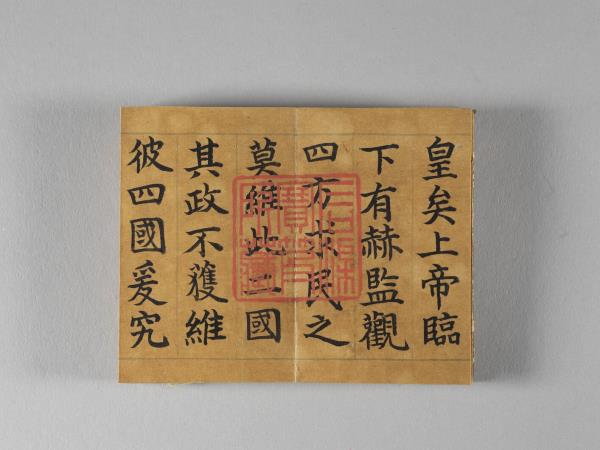 皇矣上帝臨
下有赫監觀
四方求民之
莫維此二國
其政不獲維
彼四國爰究